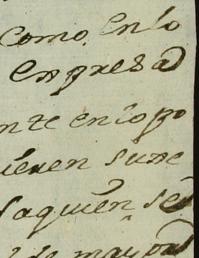 como, en lo
en presa d
nte en lo po
ieren sune
saquien se
de mayor